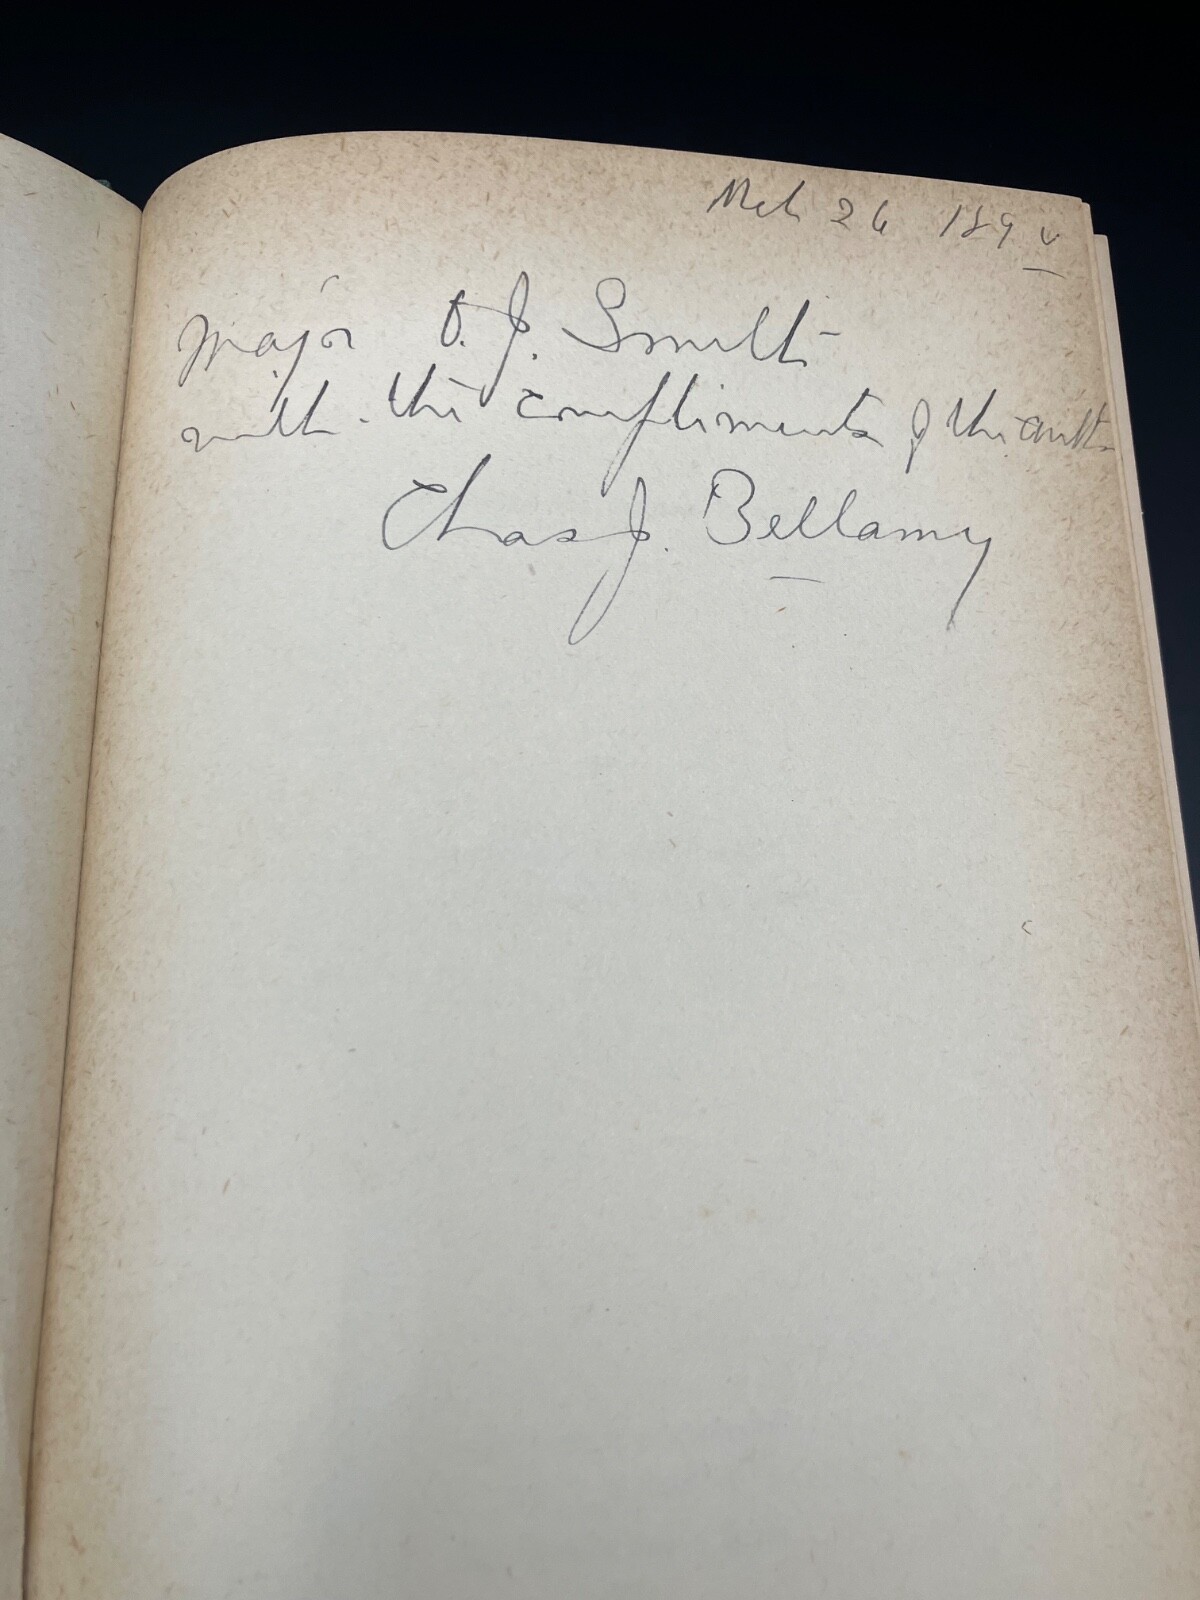 Mch 26 189
Major O. J. Smith
with the compliments of the author
Chas J. Bellamy